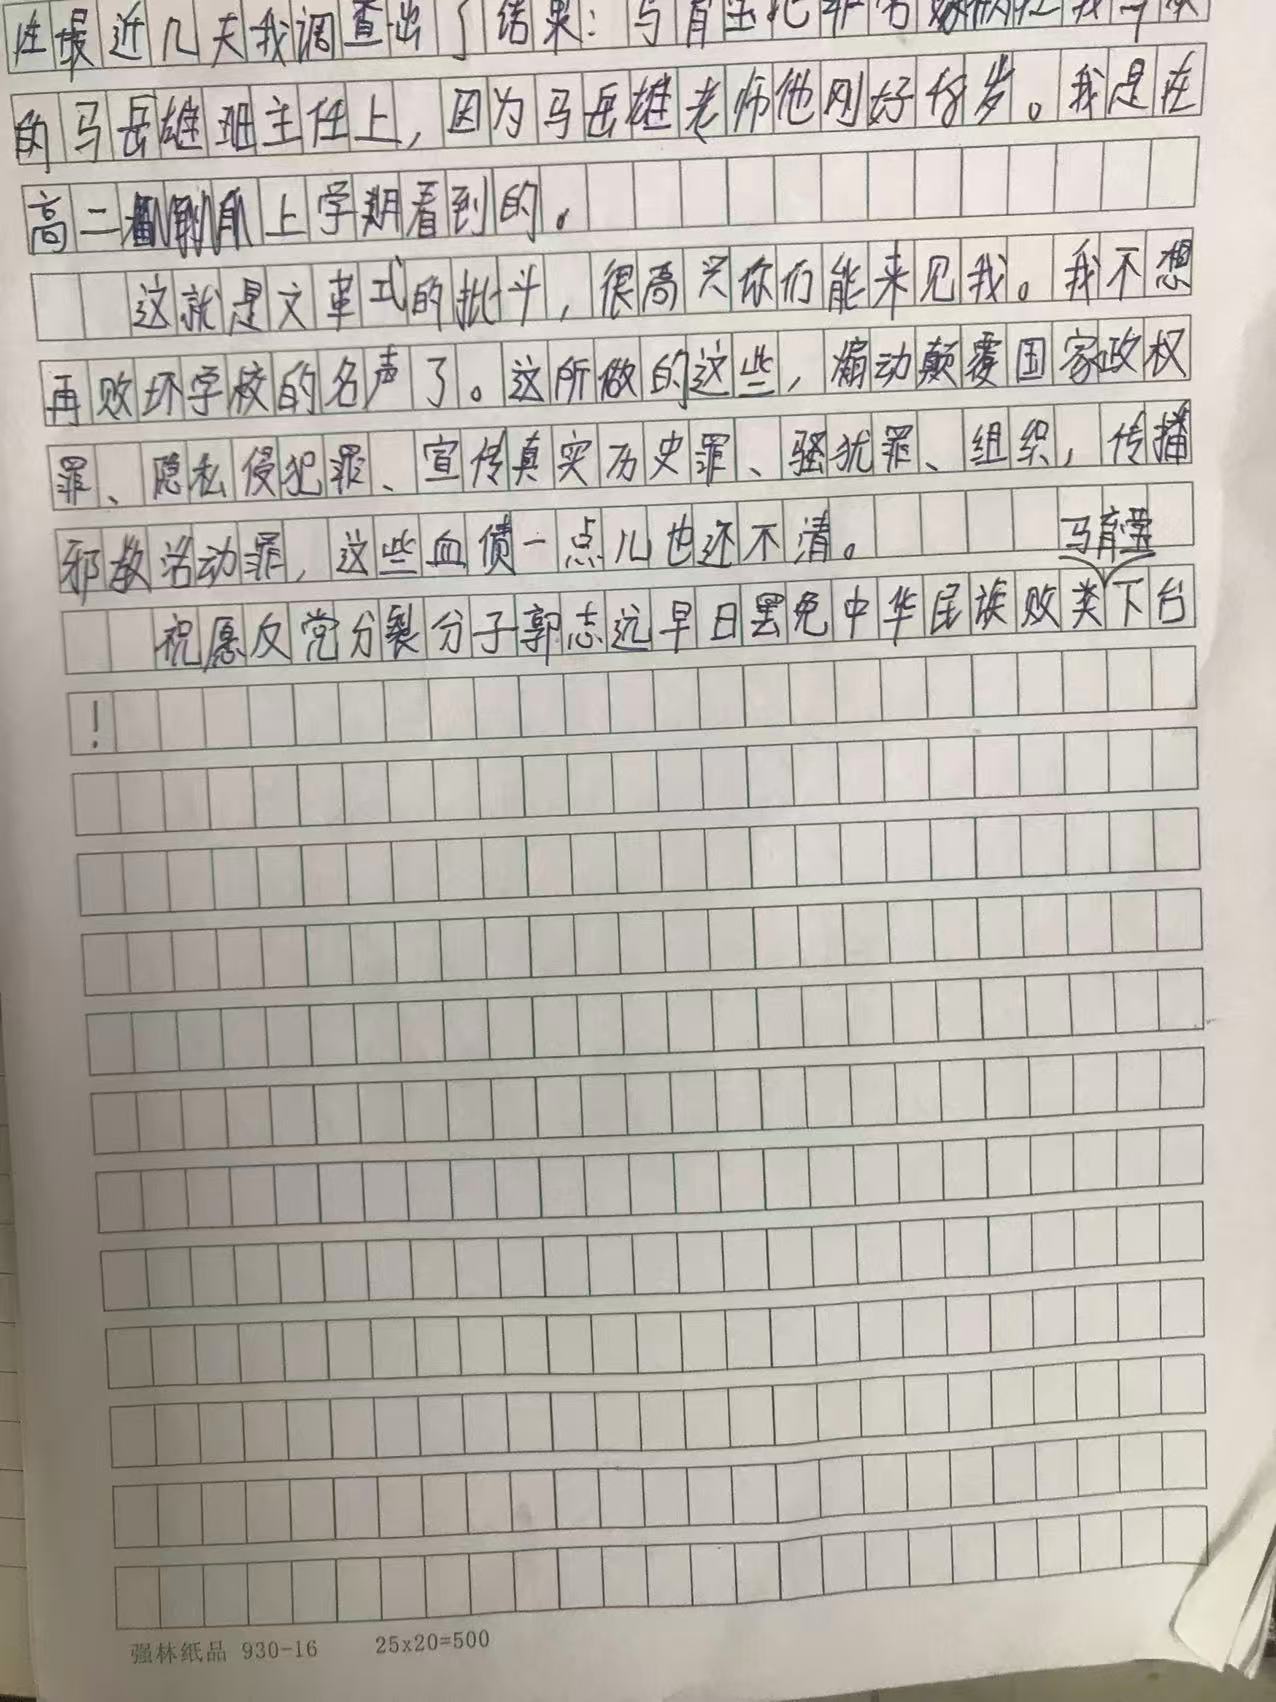 往最近几天我调查出了结果：马育
的马岳雄班主任上，因为马岳雄老师他刚好48岁。我是在
高二上学期看到的。
这就是文革式的批斗，很高兴你们能来见我。我不想
再败坏学校的名声了。这所做的这些，煽动颠覆国家政权
罪、隐私侵犯罪、宣传真实历史罪、骚扰罪、组织，传播
邪教活动罪，这些血债一点儿也还不清。
马育
祝愿反党分裂分子郭志远早日罢免中华民族败类下台
！
强林纸品 930-16 25x20=500